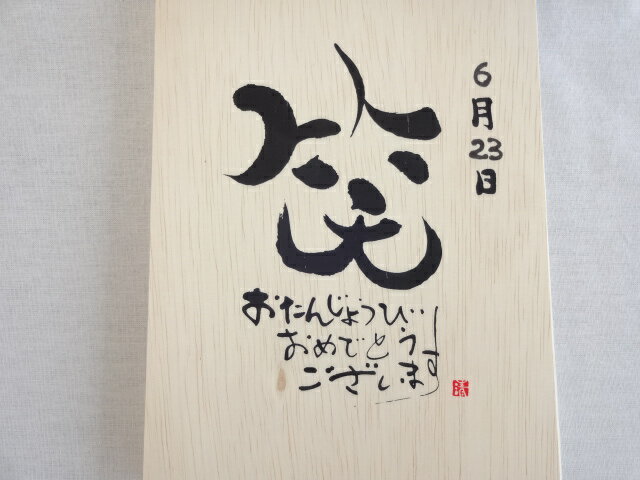 6月23日
笑
おたんじょうび
おめでとう
ございます